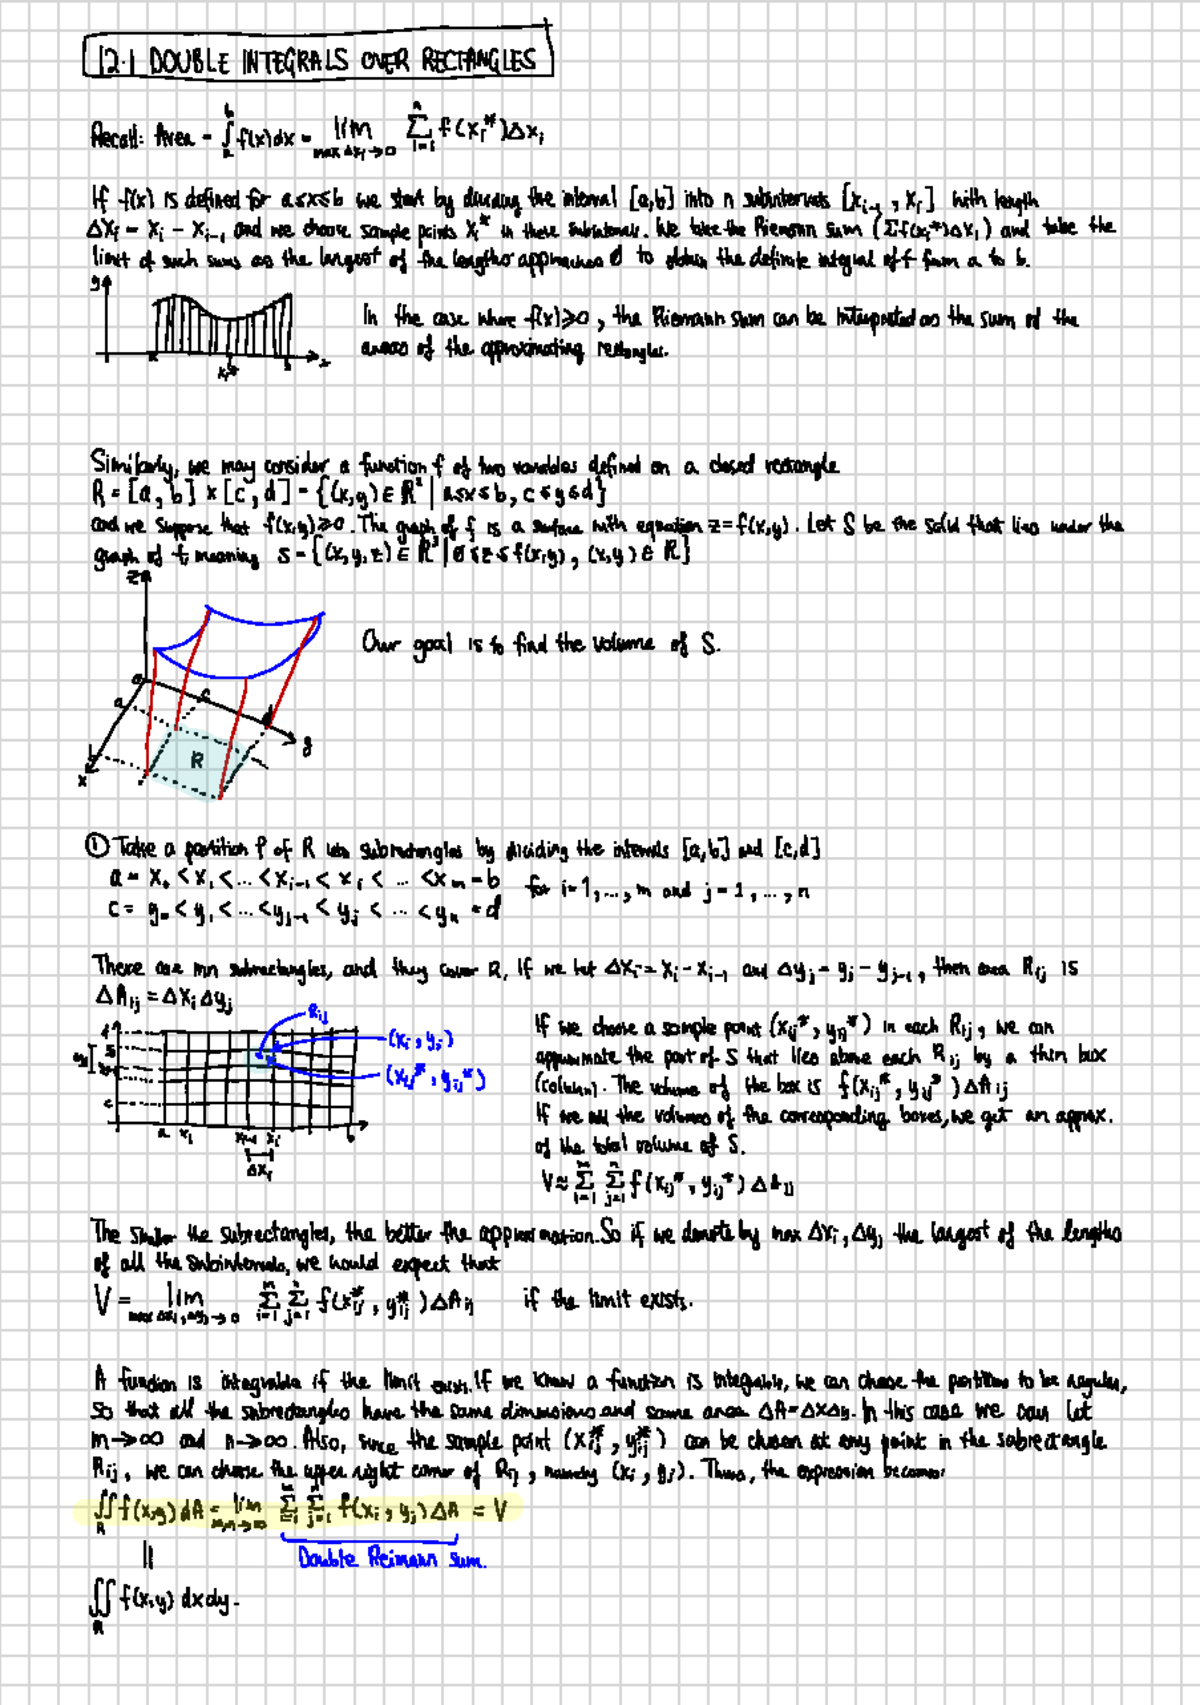 12.1 DOUBLE INTEGRALS OVER RECTANGLES
Recall: Area = ∫ₐᵇ f(x)dx = lim max Δxᵢ→0 Σᵢ₌₁ⁿ f(xᵢ*)Δxᵢ
If f(x) is defined for a≤x≤b we start by dividing the interval [a,b] into n subintervals [xᵢ₋₁, xᵢ] with length
Δxᵢ = xᵢ - xᵢ₋₁ and we choose sample points xᵢ* in these subintervals. We take the Riemann sum (Σf(xᵢ*)Δxᵢ) and take the
limit of such sums as the largest of the lengths approaches 0 to obtain the definite integral of f from a to b.
y
a xᵢ* b x
In the case where f(x)≥0, the Riemann sum can be interpreted as the sum of the
areas of the approximating rectangles.
Similarly, we may consider a function f of two variables defined on a closed rectangle
R = [a,b] × [c,d] = {(x,y) ∈ ℝ² | a≤x≤b, c≤y≤d}
and we suppose that f(x,y)≥0. The graph of f is a surface with equation z=f(x,y). Let S be the solid that lies under the
graph of f, meaning S = {(x,y,z) ∈ ℝ³ | 0≤z≤f(x,y), (x,y) ∈ R}
z
Our goal is to find the volume of S.
0
a c
d
y
b R
x
① Take a partition P of R into subrectangles by dividing the intervals [a,b] and [c,d]
a = x₀ < x₁ < ... < xᵢ₋₁ < xᵢ < ... < xₘ = b for i=1,...,m and j=1,...,n
c = y₀ < y₁ < ... < yⱼ₋₁ < yⱼ < ... < yₙ = d
There are mn subrectangles, and they cover R. If we let Δxᵢ = xᵢ - xᵢ₋₁ and Δyⱼ = yⱼ - yⱼ₋₁, then area Rᵢⱼ is
ΔAᵢⱼ = ΔxᵢΔyⱼ
Rᵢⱼ
(xᵢ, yⱼ)
(xᵢⱼ*, yᵢⱼ*)
c
a x₁ xᵢ₋₁ xᵢ b
Δxᵢ
If we choose a sample point (xᵢⱼ*, yᵢⱼ*) in each Rᵢⱼ, we can
approximate the part of S that lies above each Rᵢⱼ by a thin box
(column). The volume of the box is f(xᵢⱼ*, yᵢⱼ*)ΔAᵢⱼ
If we add the volumes of the corresponding boxes, we get an approx.
of the total volume of S.
V ≈ Σᵢ₌₁ᵐ Σⱼ₌₁ⁿ f(xᵢⱼ*, yᵢⱼ*)ΔAᵢⱼ
The smaller the subrectangles, the better the approximation. So if we denote by max Δxᵢ, Δyⱼ the largest of the lengths
of all the subintervals, we would expect that
V = lim max Δxᵢ, Δyⱼ→0 Σᵢ₌₁ᵐ Σⱼ₌₁ⁿ f(xᵢⱼ*, yᵢⱼ*)ΔAᵢⱼ if the limit exists.
A function is integrable if the limit exists. If we know a function is integrable, we can chose the partitions to be regular,
so that all the subrectangles have the same dimensions and same area ΔA=ΔxΔy. In this case we can let
m→∞ and n→∞. Also, since the sample point (xᵢⱼ*, yᵢⱼ*) can be chosen at any point in the subrectangle
Rᵢⱼ, we can choose the upper right corner of Rᵢⱼ, namely (xᵢ, yⱼ). Thus, the expression becomes:
∬_R f(x,y)dA = lim m,n→∞ Σᵢ₌₁ᵐ Σⱼ₌₁ⁿ f(xᵢ, yⱼ)ΔA = V
|| Double Reimann sum.
∬_R f(x,y) dxdy.